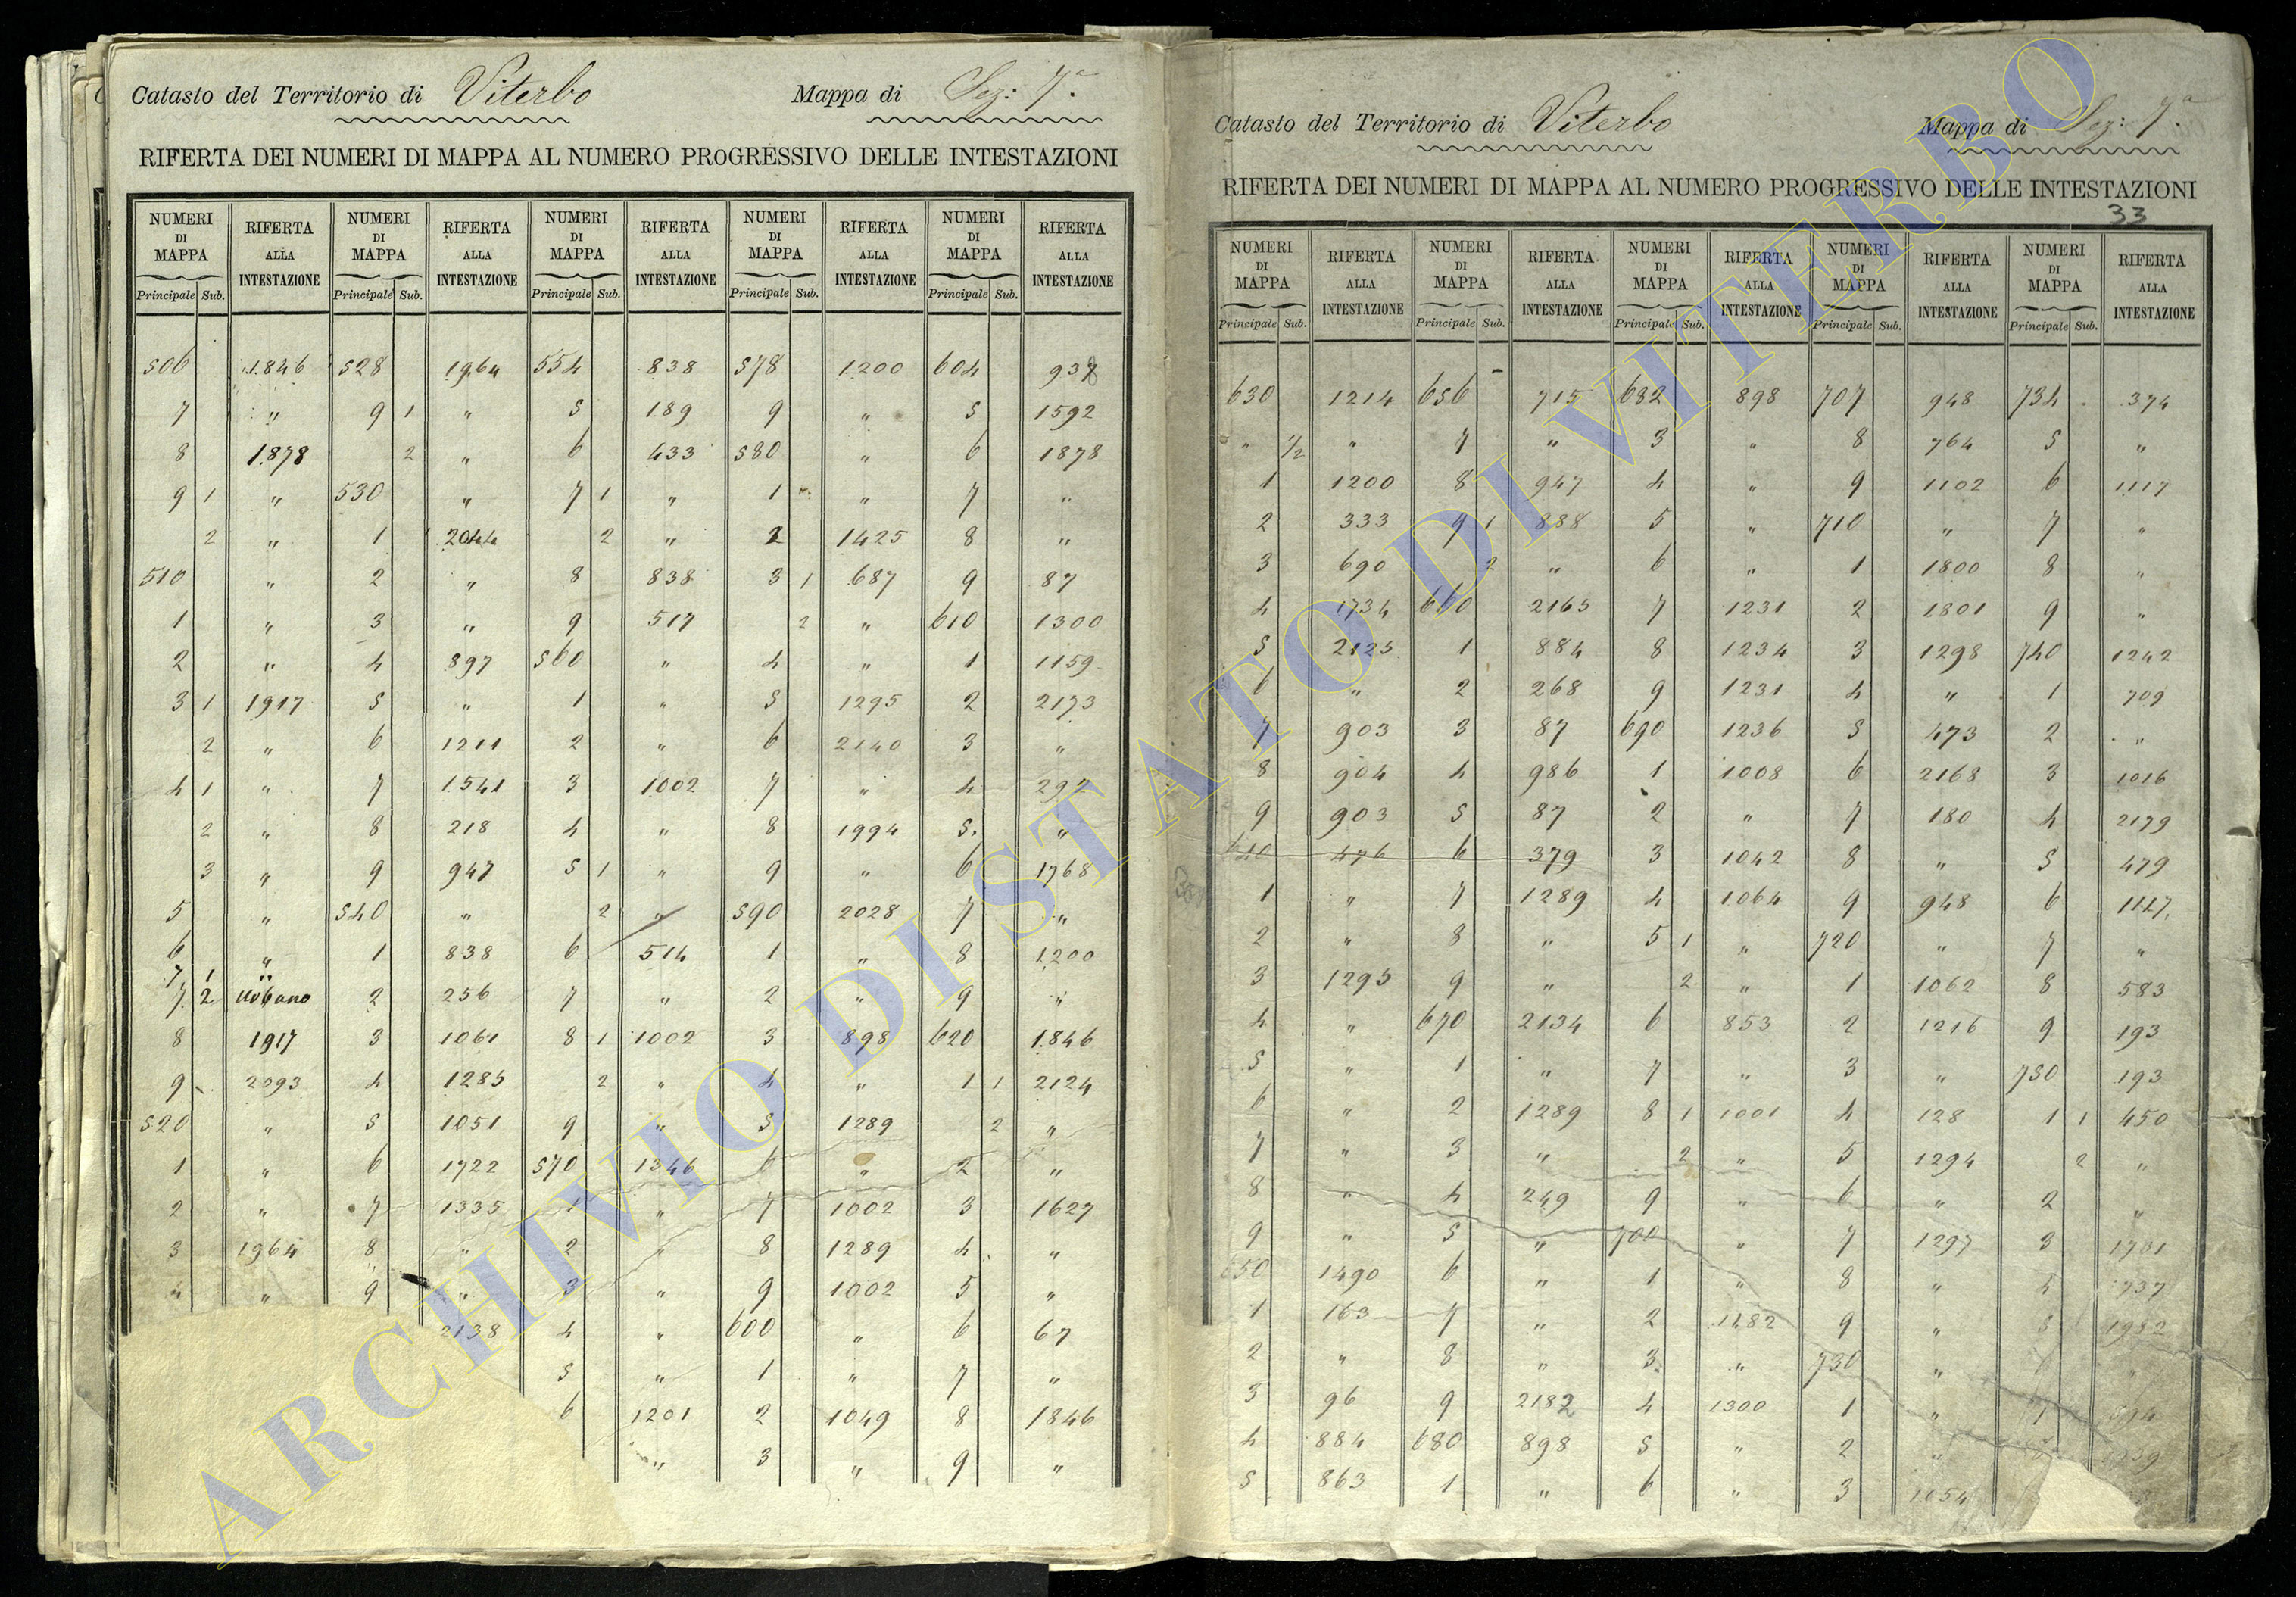 Catasto del Territorio di Viterbo Mappa di Sez: 7ª
RIFERTA DEI NUMERI DI MAPPA AL NUMERO PROGRESSIVO DELLE INTESTAZIONI
NUMERI DI MAPPA RIFERTA ALLA INTESTAZIONE NUMERI DI MAPPA RIFERTA ALLA INTESTAZIONE NUMERI DI MAPPA RIFERTA ALLA INTESTAZIONE NUMERI DI MAPPA RIFERTA ALLA INTESTAZIONE NUMERI DI MAPPA RIFERTA ALLA INTESTAZIONE
Principale Sub. Principale Sub. Principale Sub. Principale Sub. Principale Sub.
506 1846 528 1964 554 838 578 1200 604
7 " 9 1 " 5 189 9 " 5 1592
8 1878 2 " 6 433 580 " 6 1878
9 1 " 530 " 7 1 " 1 " 7 "
2 " 1 2044 2 " 2 1425 8 "
510 " 2 " 8 838 3 1 687 9 87
1 " 3 " 9 517 2 " 610 1300
2 " 4 897 560 " 4 " 1 1159
3 1 1917 5 " 1 " 5 1295 2 2173
2 " 6 1211 2 " 6 2140 3 "
4 1 " 7 1541 3 1002 7 " 4
2 " 8 218 4 " 8 1994 5 "
3 " 9 947 5 1 " 9 " 6 1768
5 " 540 " 2 " 590 2028 7 "
6 " 1 838 6 514 1 " 8 1200
7 1 "
7 2 urbano 2 256 7 " 2 " 9 "
8 1917 3 1061 8 1 1002 3 898 620 1846
9 2093 4 1285 2 " 4 " 1 1 2124
520 " 5 1051 9 " 5 1289 2 "
1 " 6 1722 570 1346 6 " 2 "
2 " 7 1335 1 " 7 1002 3 1627
3 1964 8 " 2 " 8 1289 4 "
4 " 9 " 3 " 9 1002 5 "
2138 4 " 600 " 6 67
5 " 1 " 7 "
6 1201 2 1049 8 1846
" 3 " 9 "
Catasto del Territorio di Viterbo Mappa di Sez: 7ª
RIFERTA DEI NUMERI DI MAPPA AL NUMERO PROGRESSIVO DELLE INTESTAZIONI
33
NUMERI DI MAPPA RIFERTA ALLA INTESTAZIONE NUMERI DI MAPPA RIFERTA ALLA INTESTAZIONE NUMERI DI MAPPA RIFERTA ALLA INTESTAZIONE NUMERI DI MAPPA RIFERTA ALLA INTESTAZIONE NUMERI DI MAPPA RIFERTA ALLA INTESTAZIONE
Principale Sub. Principale Sub. Principale Sub. Principale Sub. Principale Sub.
630 1214 656 715 682 898 707 948 734 374
" 1/2 " 7 " 3 " 8 764 5 "
1 1200 8 947 4 " 9 1102 6 1117
2 333 9 1 888 5 " 710 " 7 "
3 690 2 " 6 " 1 1800 8 "
4 1734 660 2165 7 1231 2 1801 9 "
5 2125 1 884 8 1234 3 1298 740 1242
6 " 2 268 9 1231 4 " 1 709
7 903 3 87 690 1236 5 473 2 "
8 904 4 986 1 1008 6 2168 3 1016
9 903 5 87 2 " 7 180 4 2179
640 476 6 379 3 1042 8 " 5 479
1 " 7 1289 4 1064 9 948 6 1117
2 " 8 " 5 1 " 720 " 7 "
3 1295 9 " 2 " 1 1062 8 583
4 " 670 2134 6 853 2 1216 9 193
5 " 1 " 7 " 3 " 750 193
6 " 2 1289 8 1 1001 4 128 1 1 450
7 " 3 " 2 " 5 1294 2 "
8 " 4 249 9 " 6 " 2 "
9 " 5 " 700 " 7 1297 3 1701
650 1490 6 " 1 " 8 " 4 737
1 163 7 " 2 1182 9 "
2 " 8 " 3 " 730 "
3 96 9 2182 4 1300 1 "
4 884 680 898 5 " 2 "
5 863 1 " 6 " 3 1054
ARCHIVIO DI STATO DI VITERBO